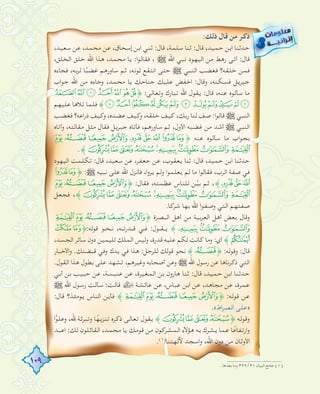 معلومات
إثرائية
ذكر من قال ذلك:
حدثنا ابن حميد، قال: ثنا سلمة، قال: ثني ابن إسحاق، عن محمد، عن سعيد،
قال: أتى رهط من اليهود نبي الله ﷺ ، فقالوا: يا محمد هذا الله خلق الخلق،
فمن خلقه؟ فغضب النبي ﷺ حتى انتقع لونه، ثم ساورهم غضبًا لربه، فجاءه
جبريل فسكنه، وقال: اخفض عليك جناحك يا محمد، وجاءه من الله جواب
ما سألوه عنه، قال: يقول الله تبارك وتعالى: ﴿ قُلْ هُوَ اللَّهُ أَحَدٌ ۝ اللَّهُ الصَّمَدُ ۝
لَمْ يَلِدْ وَلَمْ يُولَدْ ۝ وَلَمْ يَكُن لَّهُ كُفُوًا أَحَدٌ ۝ ﴾ فلما تلاها عليهم
النبي ﷺ قالوا: صف لنا ربك، كيف خلقه، وكيف عضده، وكيف ذراعه؟ فغضب
النبي ﷺ أشد من غضبه الأول، ثم ساورهم، فأتاه جبريل فقال مثل مقالته، وأتاه
بجواب ما سألوه عنه ﴿ وَمَا قَدَرُوا اللَّهَ حَقَّ قَدْرِهِ وَالْأَرْضُ جَمِيعًا قَبْضَتُهُ يَوْمَ
الْقِيَامَةِ وَالسَّمَاوَاتُ مَطْوِيَّاتٌ بِيَمِينِهِ سُبْحَانَهُ وَتَعَالَى عَمَّا يُشْرِكُونَ ﴾ .
حدثنا ابن حميد، قال: ثنا يعقوب، عن جعفر، عن سعيد، قال: تكلمت اليهود
في صفة الرب، فقالوا ما لم يعلموا ولم يروا، فأنزل الله على نبيه ﷺ : ﴿ وَمَا قَدَرُوا
اللَّهَ حَقَّ قَدْرِهِ ﴾ ، ثم بيّن للناس عظمته، فقال: ﴿ وَالْأَرْضُ جَمِيعًا قَبْضَتُهُ يَوْمَ
الْقِيَامَةِ وَالسَّمَاوَاتُ مَطْوِيَّاتٌ بِيَمِينِهِ سُبْحَانَهُ وَتَعَالَى عَمَّا يُشْرِكُونَ ﴾ ، فجعل
صفتهم التي وصفوا الله بها شركًا.
وقال بعض أهل العربية من أهل البصرة ﴿ وَالْأَرْضُ جَمِيعًا قَبْضَتُهُ يَوْمَ الْقِيَامَةِ
وَالسَّمَاوَاتُ مَطْوِيَّاتٌ بِيَمِينِهِ ﴾ يقول: في قدرته، نحو قوله: ﴿ وَمَا مَلَكَتْ
أَيْمَانُكُمْ ﴾ أي: وما كانت لكم عليه قدرة وليس الملك لليمين دون سائر الجسد،
قال: وقوله: ﴿ قَبْضَتُهُ ﴾ نحو قولك للرجل: هذا في يدك وفي قبضتك. والأخبار
التي ذكرناها عن رسول الله ﷺ وعن أصحابه وغيرهم، تشهد على بطول هذا القول.
حدثنا ابن حميد، قال: ثنا هارون بن المغيرة، عن عنبسة، عن حبيب بن أبي
عمرة، عن مجاهد، عن ابن عباس، عن عائشة قالت: سألت رسول الله ﷺ
عن قوله: ﴿ وَالْأَرْضُ جَمِيعًا قَبْضَتُهُ يَوْمَ الْقِيَامَةِ ﴾ فأين الناس يومئذ؟ قال:
«على الصراط».
وقوله ﴿ سُبْحَانَهُ وَتَعَالَى عَمَّا يُشْرِكُونَ ﴾ يقول تعالى ذكره تنزيهًا وتبرئة لله، وعلوًّا
وارتفاعًا عما يشرك به هؤلاء المشركون من قومك يا محمد، القائلون لك: اعبد
الأوثان من دون الله، واسجد لآلهتنا(١).
(١) جامع البيان ٢١/ ٣٢٩ وما بعدها.
١٠٩